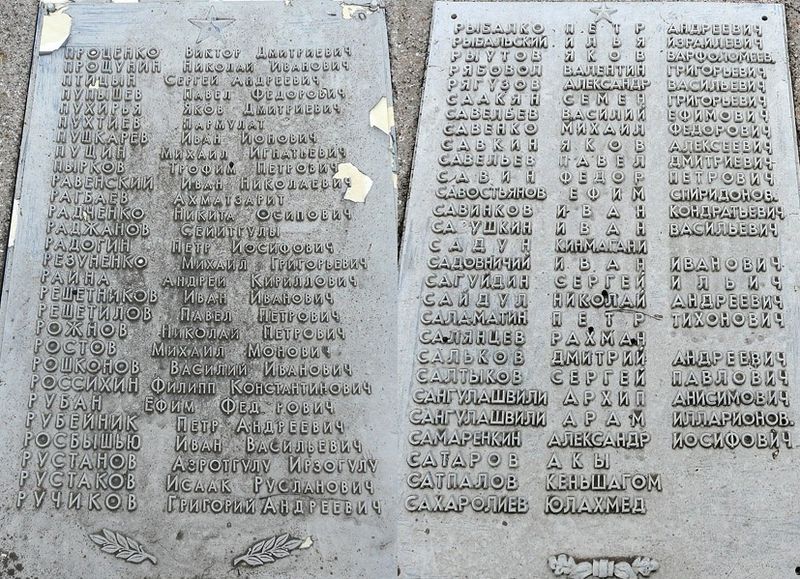 ПРОЦЕНКО ВИКТОР ДМИТРИЕВИЧ
ПРОЩУНИН НИКОЛАЙ ИВАНОВИЧ
ПТИЦЫН СЕРГЕЙ АНДРЕЕВИЧ
ПУПЫШЕВ ПАВЕЛ ФЕДОРОВИЧ
ПУХИРЬЯ ЯКОВ ДМИТРИЕВИЧ
ПУХТИЕВ НАРМУДАТ
ПУШКАРЕВ ИВАН ИОНОВИЧ
ПУЩИН МИХАИЛ ИГНАТЬЕВИЧ
ПЫРКОВ ТРОФИМ ПЕТРОВИЧ
РАВЕНСКИЙ ИВАН НИКОЛАЕВИЧ
РАГБАЕВ АХМАТЗАРИТ
РАДЧЕНКО НИКИТА ОСИПОВИЧ
РАДЖАНОВ СЕИИТГУЛЫ
РАДОГИН ПЕТР ИОСИФОВИЧ
РЕЗУНЕНКО МИХАИЛ ГРИГОРЬЕВИЧ
РАИНА АНДРЕЙ КИРИЛЛОВИЧ
РЕШЕТНИКОВ ИВАН ИВАНОВИЧ
РЕШЕТИЛОВ ПАВЕЛ ПЕТРОВИЧ
РОЖНОВ НИКОЛАЙ ПЕТРОВИЧ
РОСТОВ МИХАИЛ МОНОВИЧ
РОШКОНОВ ВАСИЛИЙ ИВАНОВИЧ
РОССИХИН ФИЛИПП КОНСТАНТИНОВИЧ
РУБАН ЕФИМ ФЕД РОВИЧ
РУБЕЙНИК ПЕТР АНДРЕЕВИЧ
РОСБЫШЬЮ ИВАН ВАСИЛЬЕВИЧ
РУСТАНОВ АЗРОТГУЛУ ИРЗОГУЛУ
РУСТАКОВ ИСААК РУСЛАНОВИЧ
РУЧИКОВ ГРИГОРИЙ АНДРЕЕВИЧ
РЫБАЛКО ПЕТР АНДРЕЕВИЧ
РЫБАЛЬСКИЙ ИЛЬЯ ИЗРАИЛЕВИЧ
РЫУТОВ ЯКОВ ВАРФОЛОМЕЕВ
РЯБОВОЛ ВАЛЕНТИН ГРИГОРЬЕВИЧ
РЯГУЗОВ АЛЕКСАНДР ВАСИЛЬЕВИЧ
СААКЯН СЕМЕН ГРИГОРЬЕВИЧ
САВЕЛЬЕВ ВАСИЛИЙ ЕФИМОВИЧ
САВЕНКО МИХАИЛ ФЕДОРОВИЧ
САВКИН ЯКОВ АЛЕКСЕЕВИЧ
САВЕЛЬЕВ ПАВЕЛ ДМИТРИЕВИЧ
САВИН ФЕДОР ПЕТРОВИЧ
САВОСТЬЯНОВ ЕФИМ СПИРИДОНОВ.
САВИНКОВ ИВАН КОНДРАТЬЕВИЧ
СА УШКИН ИВАН ВАСИЛЬЕВИЧ
САДУН КИНМАГАНИ
САДОВНИЧИЙ ИВАН ИВАНОВИЧ
САГУЙДИН СЕРГЕЙ ИЛЬИЧ
САЙДУЛ НИКОЛАЙ АНДРЕЕВИЧ
САЛАМАТИН ПЕТР ТИХОНОВИЧ
САЛЯНЦЕВ РАХМАН
САЛЬКОВ ДМИТРИЙ АНДРЕЕВИЧ
САЛТЫКОВ СЕРГЕЙ ПАВЛОВИЧ
САНГУЛАШВИЛИ АРХИП АНИСИМОВИЧ
САНГУЛАШВИЛИ АРАМ ИЛЛАРИОНОВ.
САМАРЕНКИН АЛЕКСАНДР ИОСИФОВИЧ
САТАРОВ АКЫ
САТПАЛОВ КЕНЬШАГОМ
САХАРОЛИЕВ ЮЛАХМЕД